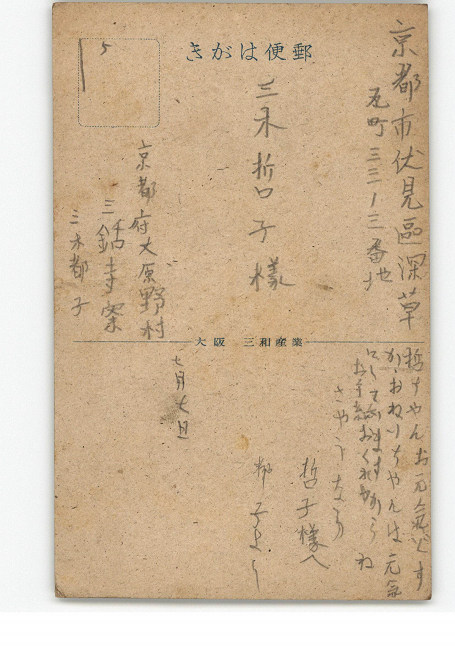 きがは便郵
京都市伏見區深草
瓦町三三ノ三番地
三木哲子様
京都府大原野村
三鈷寺寮
三木都子
大阪 三和産業
哲子ちゃんお元氣ですか
おねいちゃんは元気
にして
お手紙おくれ
さやうなら
哲子様へ
都子より
七月七日